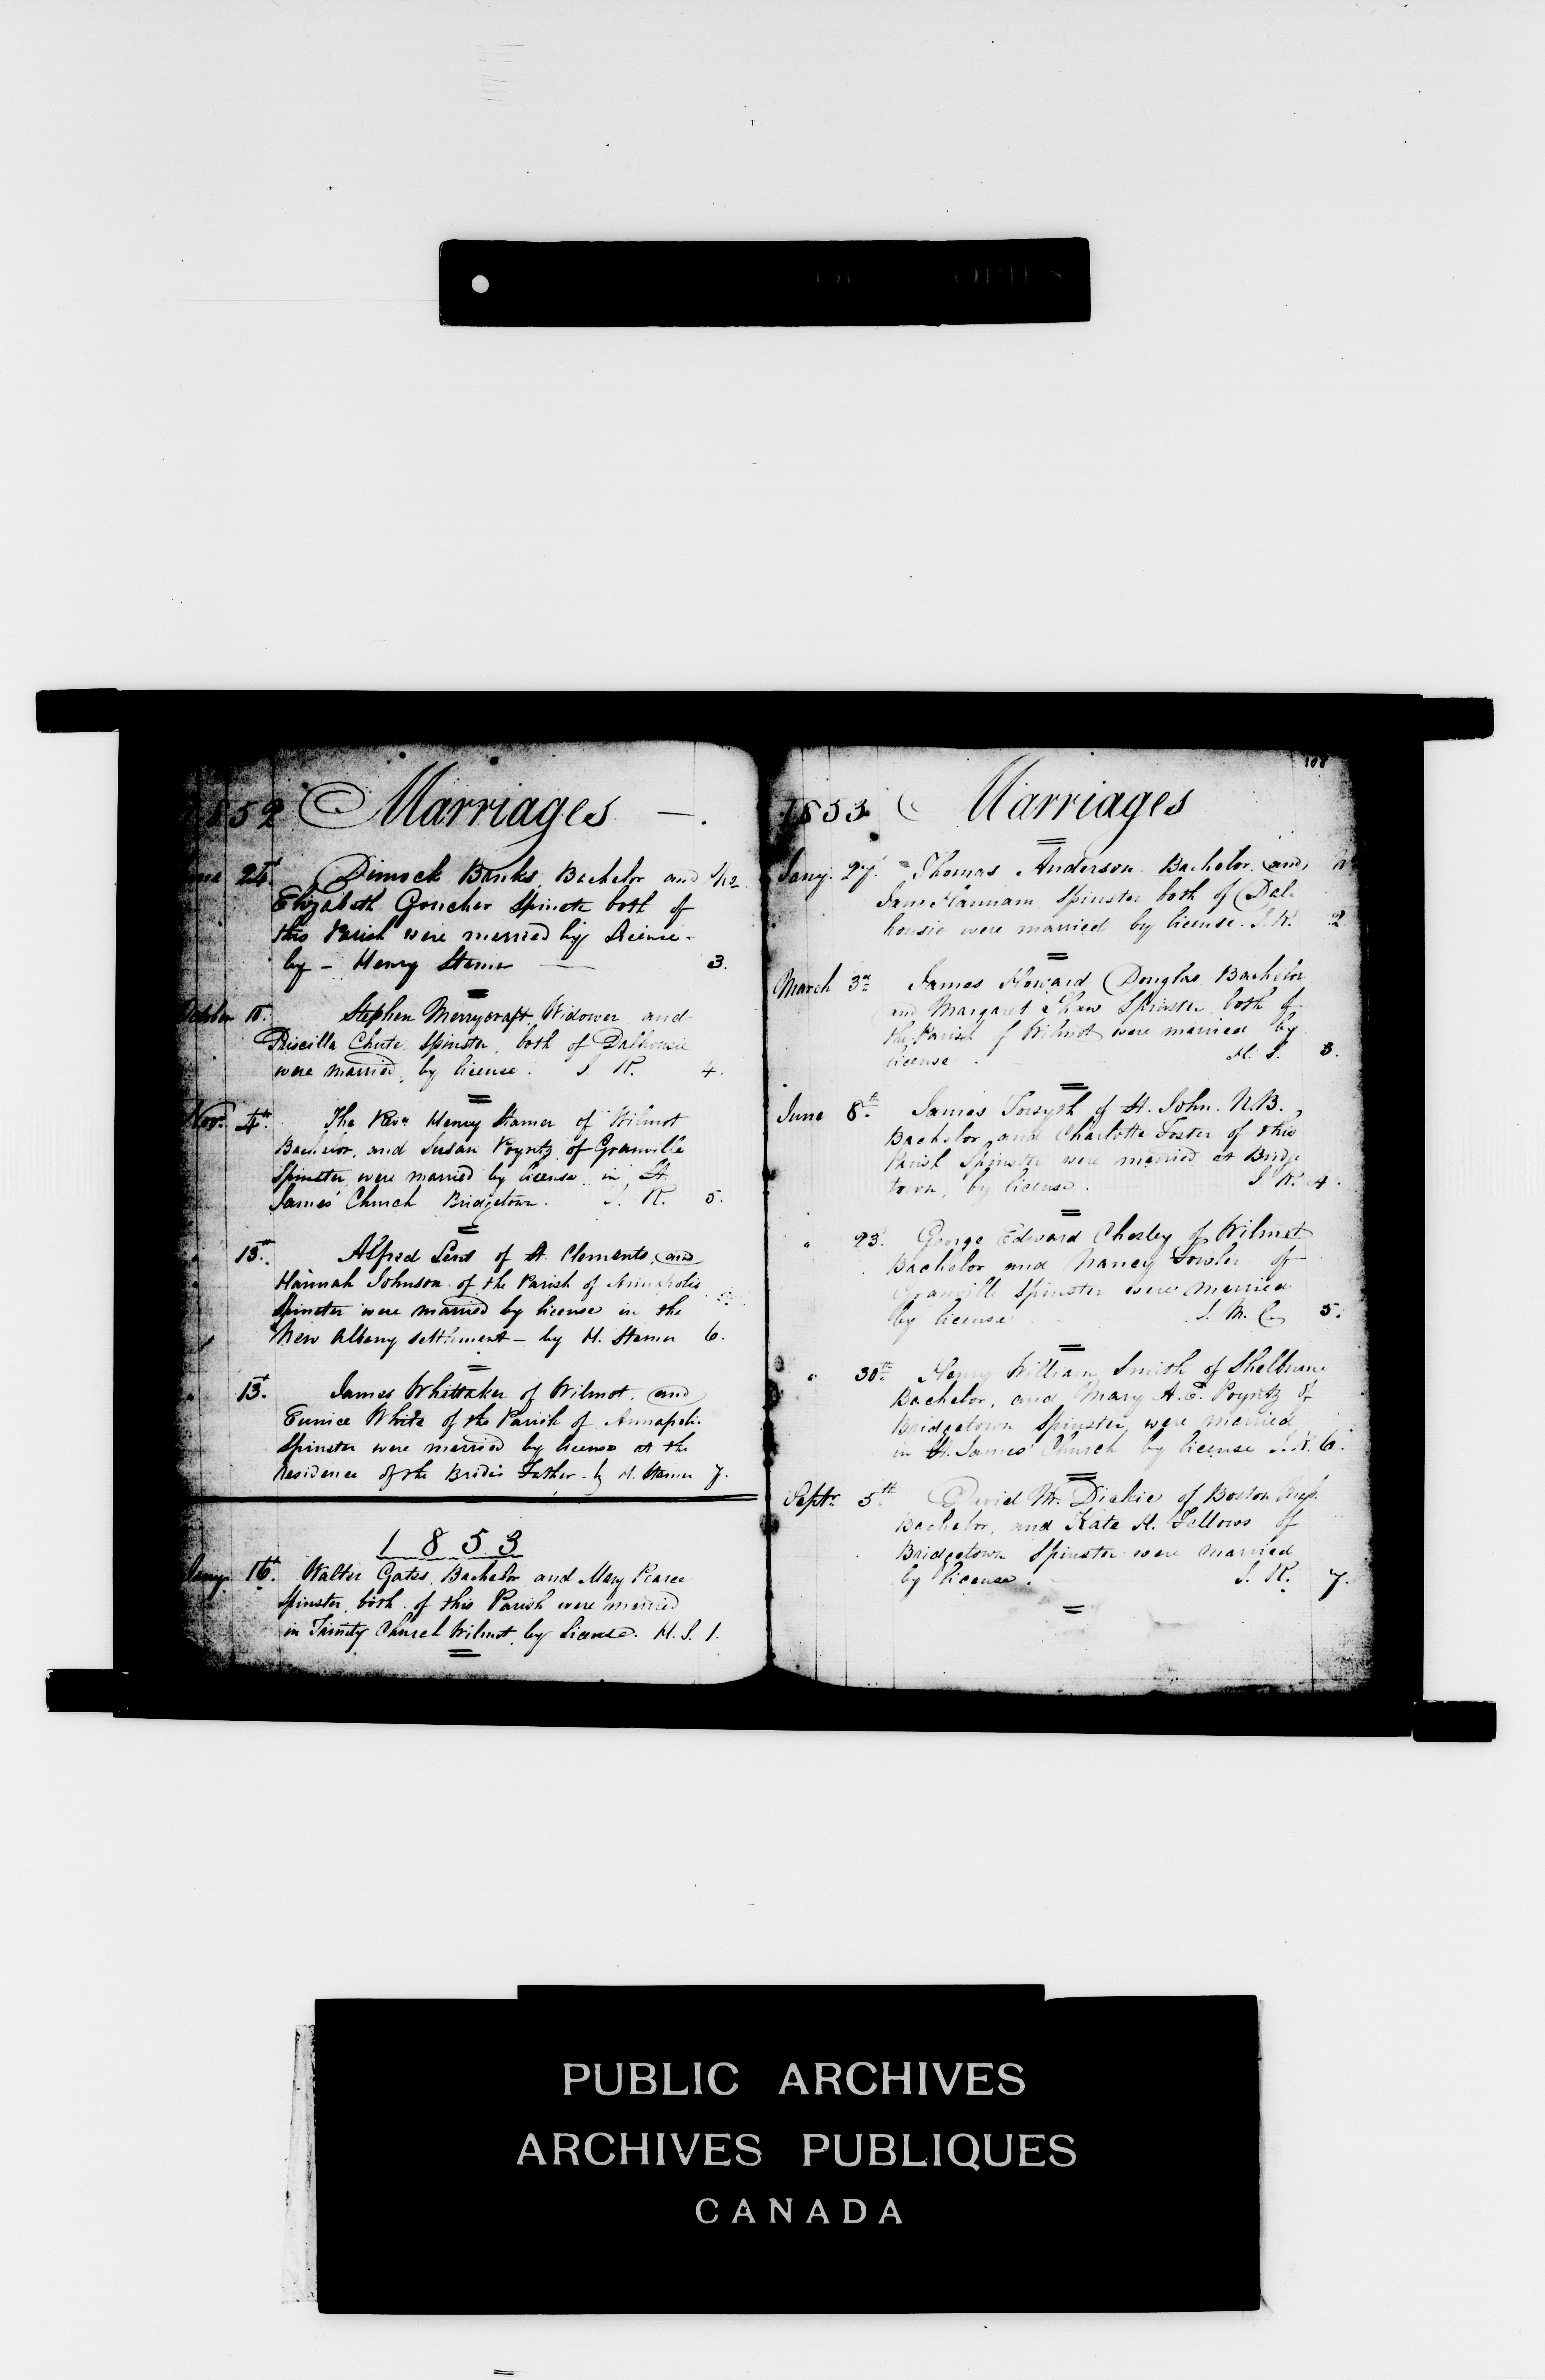 1852 Marriages —.
June 24th. Dimock Banks, Bachelor and
Elizabeth Goucher Spinster both of
this Parish were married by License.
by - Henry Stamer — 3.
October 10. Stephen Merrycraft, Widower and
Priscilla Chute, Spinster, both of Dalhousie
were married, by license. J. R. 4.
Nov. 4th. The Revd. Henry Stamer of Wilmot
Bachelor, and Susan Poyntz of Granville
Spinster, were married by license, in St.
James' Church Bridgetown. J. R. 5.
" 13th. Alfred Lent of St. Clements, and
Hannah Johnson of the Parish of Annapolis
Spinster were married by license in the
New Albany settlement - by H. Stamer 6.
" 13. James Whittaker of Wilmot, and
Eunice White of the Parish of Annapolis
Spinster were married by license at the
residence of the Bride's Father - by H. Stamer 7.
1853
Jany. 16. Walter Gates, Bachelor and Mary Pearce
Spinster, both of this Parish were married
in Trinity Church Wilmot, by License. H. S. 1.
108
1853 Marriages
Jany. 27. Thomas Anderson Bachelor, and
Jane Hannam, Spinster both of Dal
housie were married by license. J. R. 2.
March 3rd. James Howard Douglas Bachelor
and Margaret Shaw Spinster both of
the Parish of Wilmot were married by
license. H. S. 3.
June 8th. James Forsyth of St. John. N.B.
Bachelor, and Charlotte Foster of this
Parish Spinster were married at Bridge
town, by license. J. R. 4.
" 23. George Edward Chesley of Wilmot
Bachelor and Nancy Fowler of
Granville Spinster were married
by license J. M. C. 5.
" 30th. Henry William Smith of Shelburne
Bachelor, and Mary A. E. Poyntz of
Bridgetown Spinster, were married
in St. James' Church by license J. R. 6.
Septr. 5th. David M. Dickie of Boston
Bachelor, and Kate A. Fellows of
Bridgetown Spinster were married
by license. J. R. 7.
PUBLIC ARCHIVES
ARCHIVES PUBLIQUES
CANADA